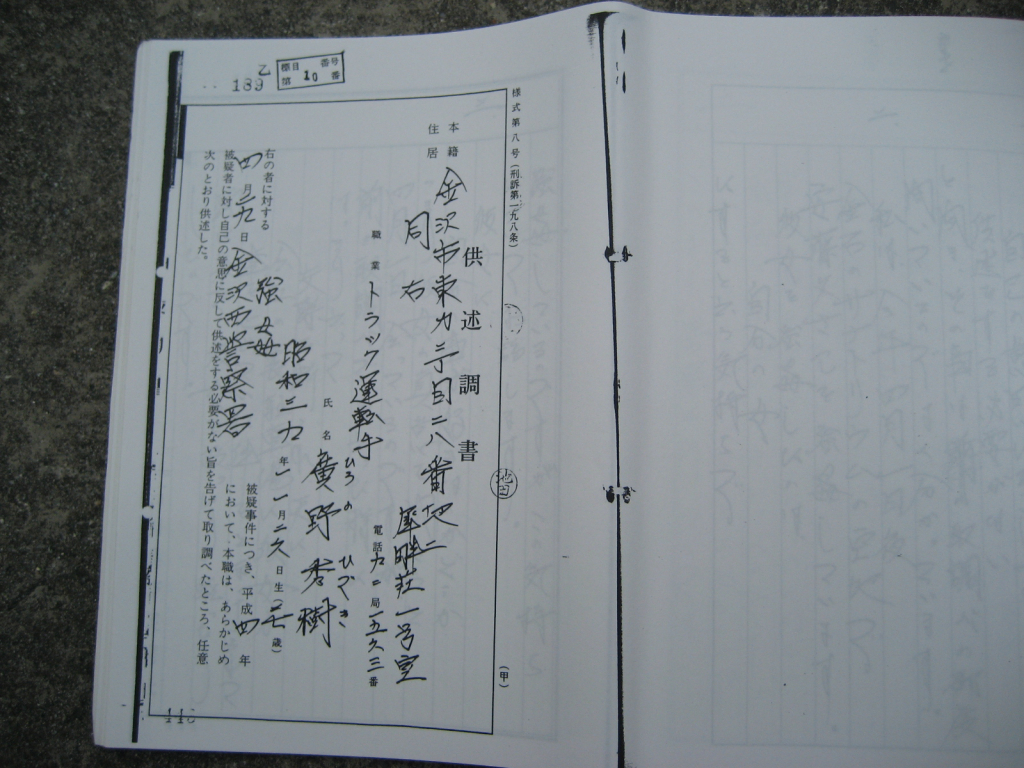 乙
189
標目 番号
第 10 番
様式第八号(刑訴第一九八条)
(甲)
供述調書
本籍 金沢市東力二丁目二八番地二
住居 同右
荘一号室
職業 トラック運転手
電話 九一局一五六三番
ひろの ひでき
氏名 廣野秀樹
昭和三九年一一月二六日生 (二七歳)
右の者に対する 被疑事件につき、平成四年
四月二九日 金沢西警察署 において、本職は、あらかじめ
被疑者に対し自己の意思に反して供述をする必要がない旨を告げて取り調べたところ、任意
次のとおり供述した。